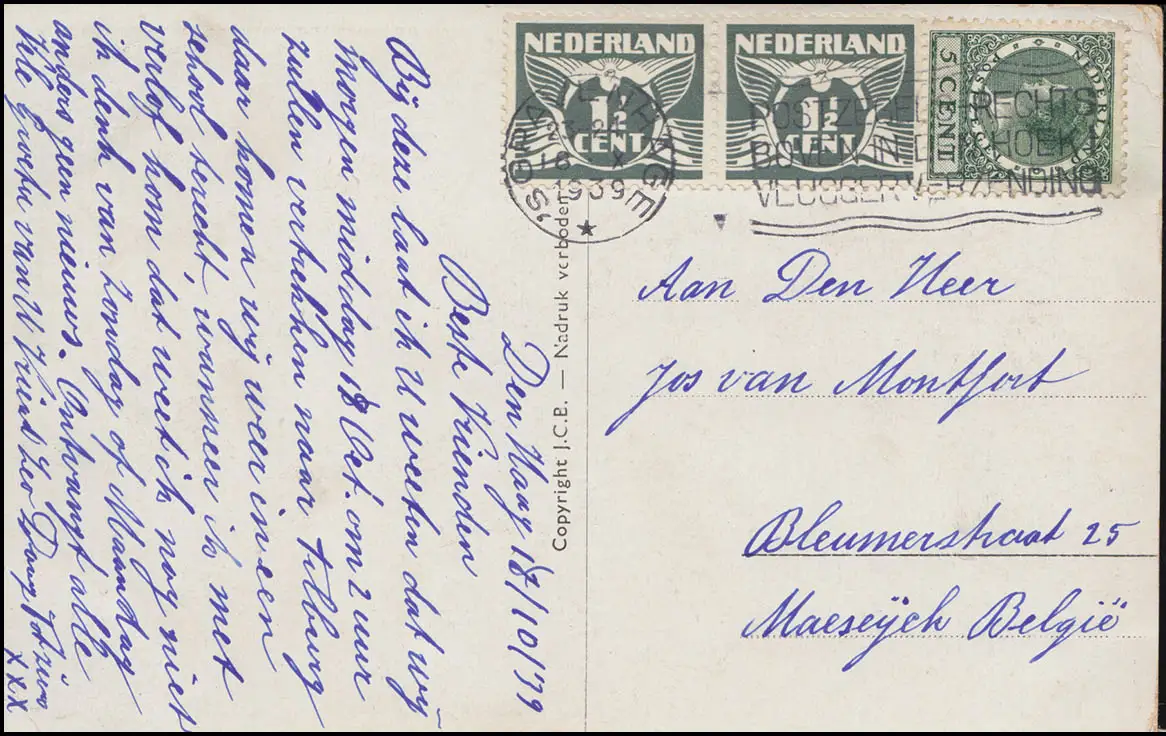 Den Haag 18/10/39
Beste Vrienden
Bij deze laat ik U weten dat wij
Morgen middag 18 Oct. om 2 uur
zullen vertrekken naar Tilburg
daar komen wij weer in een
school terecht, wanneer ik met
verlof kom dat weet ik nog niet
ik denk van zondag of Maandag
anders geen nieuws. Ontvangt alle
vele groeten van U Vriend Leo
xxx
NEDERLAND
1½
CENT
NEDERLAND
1½
CENT
NEDERLAND
5 CENT
'S GRAVENHAGE
X
1939
POSTZEGEL RECHTS
BOVEN IN DEN HOEK
VLUGGER VERZENDING
Copyright J.C.B. — Nadruk verboden
Aan Den Heer
Jos van Montfort
Bleumerstraat 25
Maeseyck België